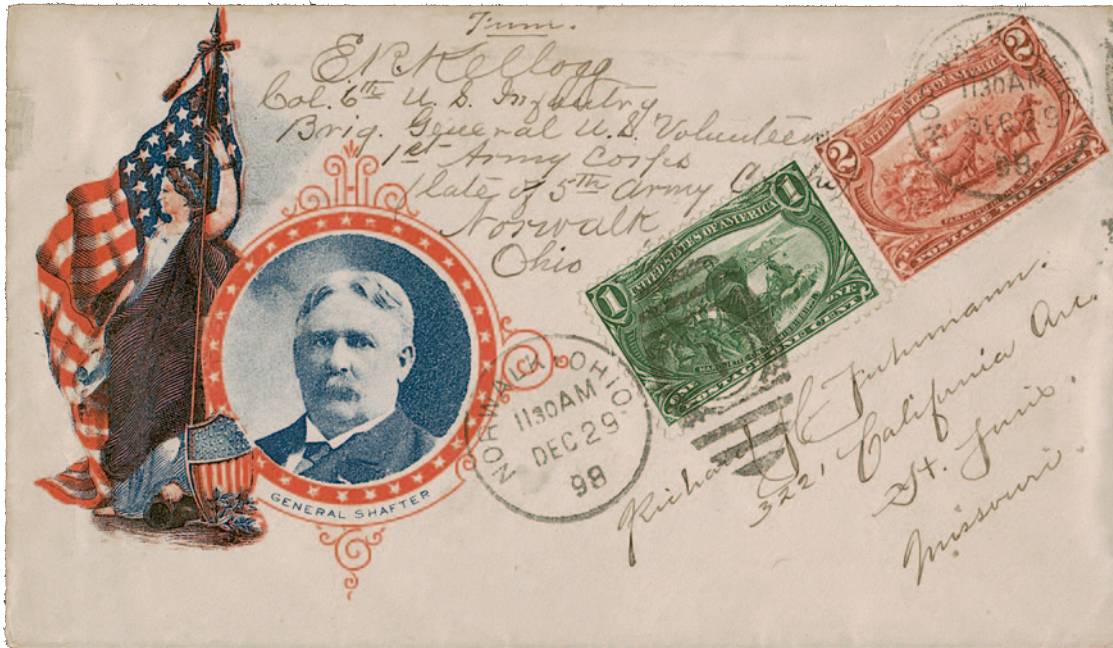 From.
E. R. Kellogg
Col. 6th U.S. Infantry
Brig. General U.S. Volunteers
1st Army Corps
late of 5th Army Corps
Norwalk
Ohio
GENERAL SHAFTER
NORWALK OHIO
1130AM
DEC 29
98
1
UNITED STATES OF AMERICA
1
POSTAGE ONE CENT
2
UNITED STATES OF AMERICA
2
POSTAGE TWO CENTS
1130AM
DEC 29
98
Richard
California Ave
St. Louis
Missouri.